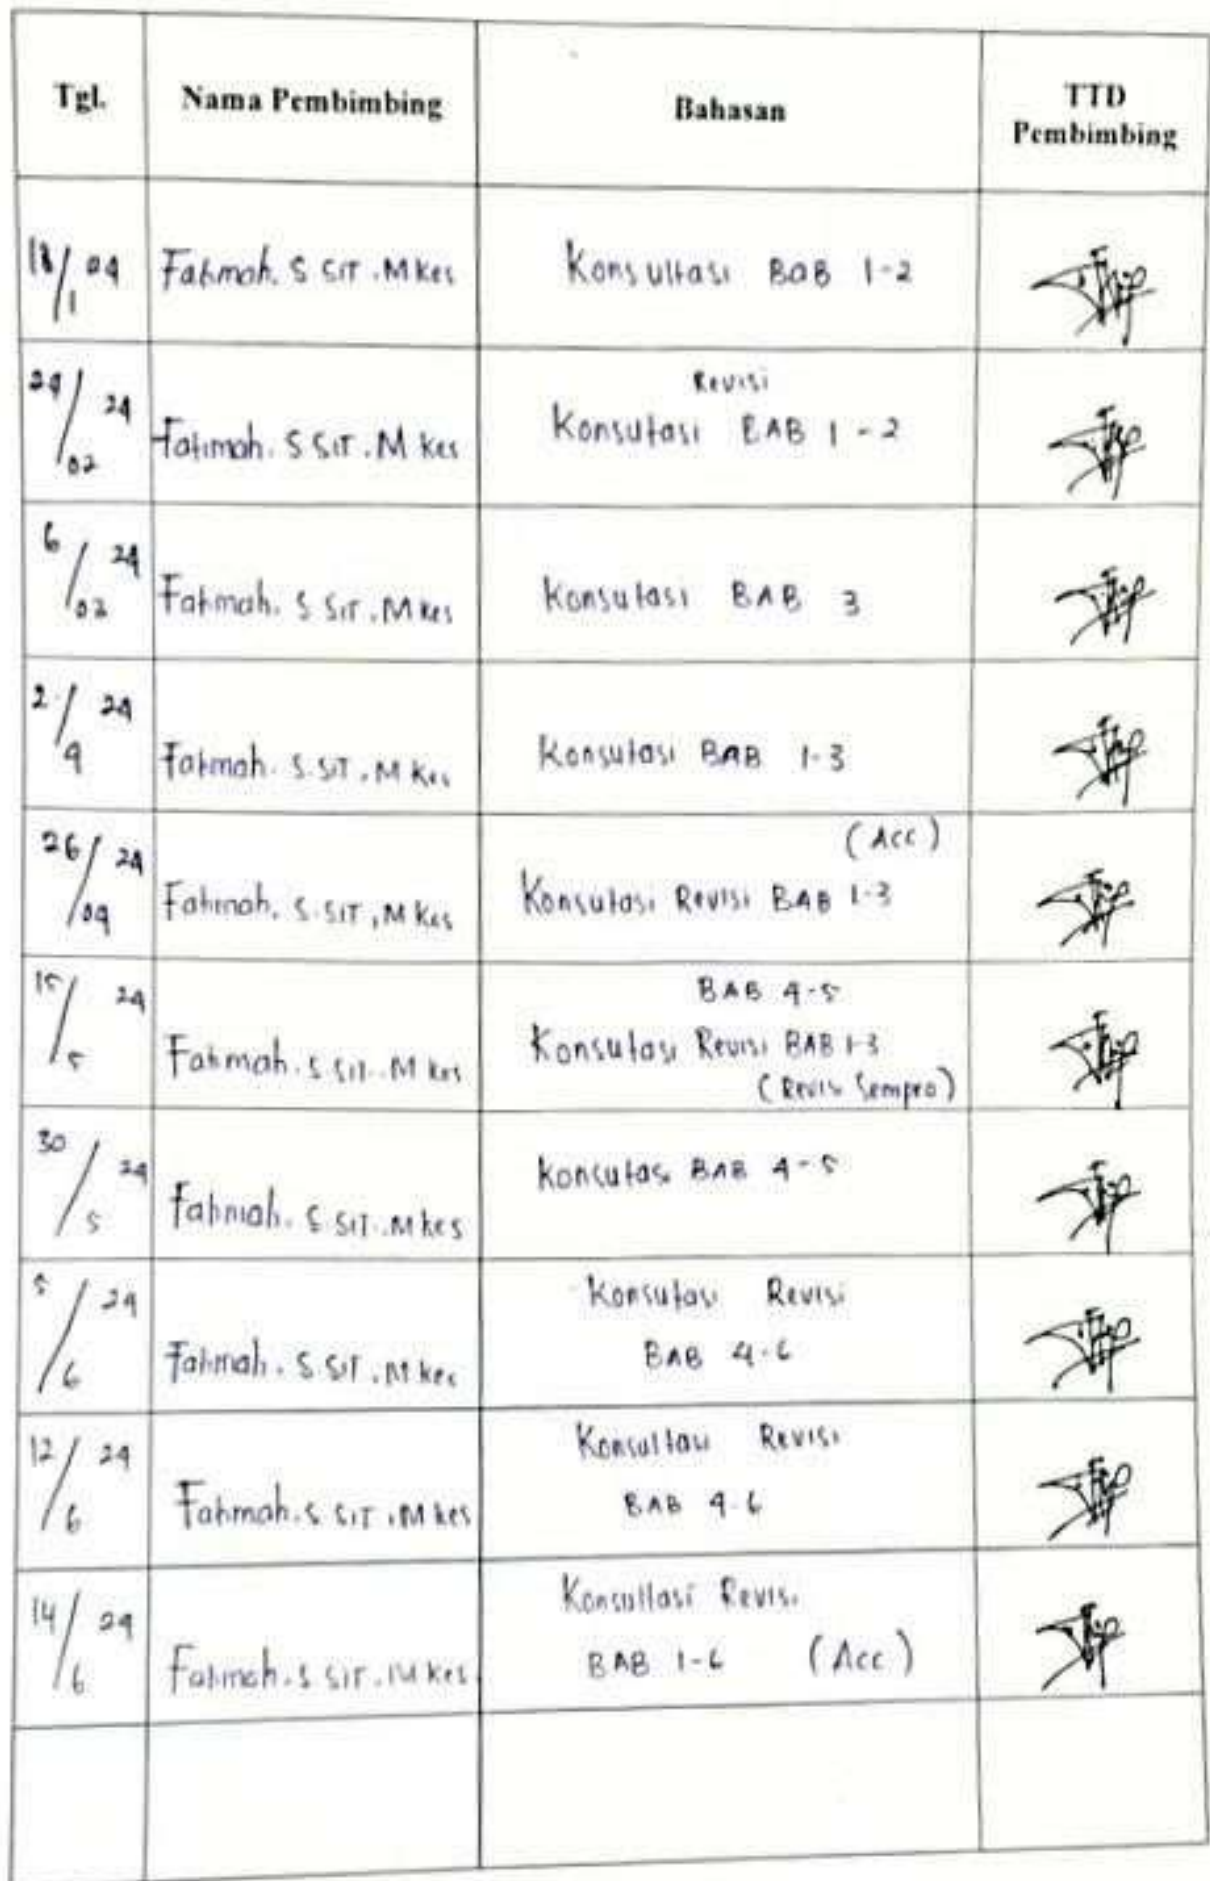 Tgl. Nama Pembimbing Bahasan TTD Pembimbing
18/1 04 Fatimah. S SiT. M Kes Konsultasi BAB 1-2
Revisi
24/02 24 Fatimah. S SiT. M Kes Konsutasi BAB 1-2
6/03 24 Fatimah. S SiT. M Kes Konsutasi BAB 3
2/4 24 Fatimah. S.SiT. M Kes Konsutasi BAB 1-3
(Acc)
26/04 24 Fatimah. S.SiT, M Kes Konsutasi Revisi BAB 1-3
BAB 4-5
15/5 24 Fatimah. S SiT. M Kes Konsutasi Revisi BAB 1-3
(Revis Sempro)
30/5 24 Fatimah. S SiT. M kes Konsutasi BAB 4-5
5/6 24 Fatimah. S.SiT. M kes Konsutasi Revisi
BAB 4-6
12/6 24 Fatimah. S SiT. M kes Konsultasi Revisi
BAB 4-6
14/6 24 Fatimah. S SiT. M Kes Konsultasi Revisi
BAB 1-6 (Acc)